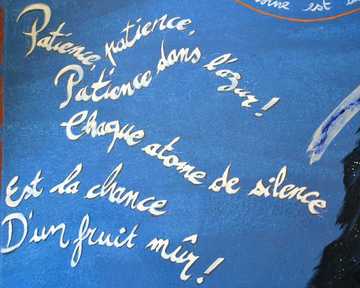 orne est
Patience, patience,
Patience dans l'azur!
Chaque atome de silence
Est la chance
D'un fruit mûr!